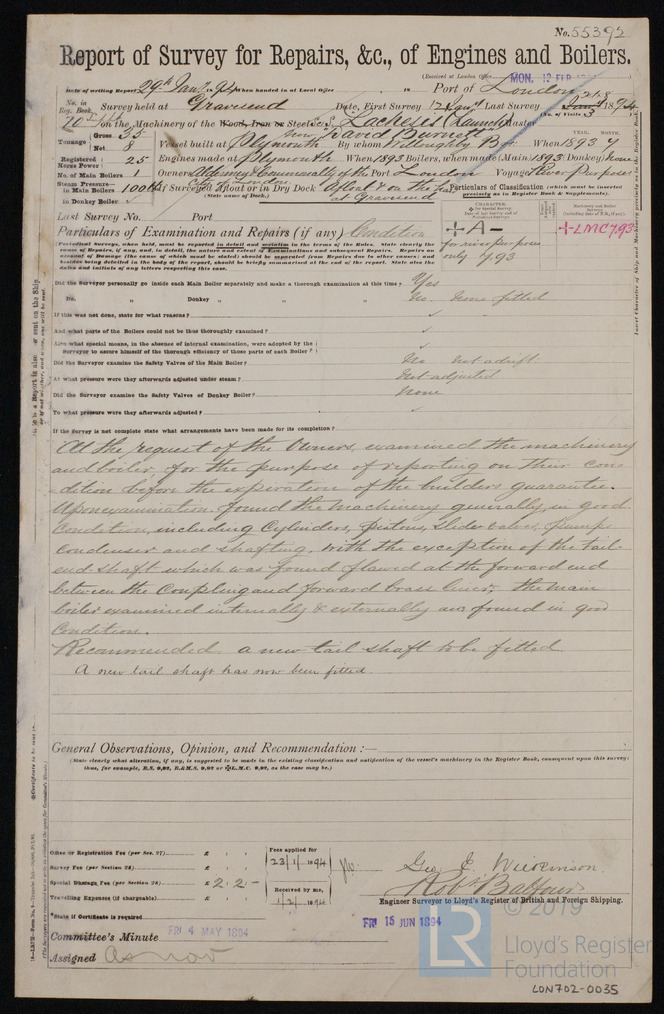 No. 55392
Report of Survey for Repairs, &c., of Engines and Boilers.
(Received at London Office MON. 12 FEB
Date of writing Report 29th Jany 1894 When handed in at Local Office in Port of London
No. in Reg. Book. Survey held at Gravesend Date, First Survey 12 Jany Last Survey 1894
(No. of Visits 3
on the Machinery of the Wood, Iron or Steel S.S. Lachesis (Launch) Master
now "David Burnett"
Tonnage Gross 35 Net 8 Vessel built at Plymouth By whom Willoughby Br. When 1893 7
YEAR. MONTH.
Registered Horse Power 25 Engines made at Plymouth When 1893 Boilers, when made (Main) 1893 (Donkey) none
No. of Main Boilers 1 Owners Aldermen & Commonalty of the City of London Port London Voyage River Purposes
Steam Pressure in Main Boilers 100 lb If Surveyed Afloat or in Dry Dock Afloat & on the at Gravesend
(State name of Dock.)
in Donkey Boiler ✓
Particulars of Classification (which must be inserted precisely as in Register Book & Supplements).
Last Survey No. Port
Particulars of Examination and Repairs (if any) Condition
+A- for river purposes only 7,93
+LMC7,93
(Periodical Surveys, when held, must be reported in detail and seriatim in the terms of the Rules. State clearly the causes of Repairs, if any, and, in detail, the nature and extent of Examinations and Repairs. Repairs on account of Damage (the cause of which must be stated) should be separated from Repairs due to other causes; and besides being detailed in the body of the report, should be briefly summarised at the end of the report. State also the dates and initials of any letters respecting this case.
Did the Surveyor personally go inside each Main Boiler separately and make a thorough examination at this time? Yes
Do. Donkey " " " no. none fitted
If this was not done, state for what reasons? ✓
And what parts of the Boilers could not be thus thoroughly examined? ✓
Also what special means, in the absence of internal examination, were adopted by the Surveyor to assure himself of the thorough efficiency of those parts of each Boiler? ✓
Did the Surveyor examine the Safety Valves of the Main Boiler? No not adrift
At what pressure were they afterwards adjusted under steam? Not adjusted
Did the Surveyor examine the Safety Valves of Donkey Boiler? none
To what pressure were they afterwards adjusted? ✓
If the Survey is not complete state what arrangements have been made for its completion?
At the request of the Owners, examined the machinery
and boiler, for the purpose of reporting on their con-
dition before the expiration of the builders guarantee.
Upon examination found the machinery generally, in good
condition, including Cylinders, pistons, slide valves, pumps
condenser and shafting. With the exception of the tail
end shaft which was found flawed at the forward end
between the Coupling and forward brass liner. the main
boiler examined internally & externally and found in good
Condition.
Recommended a new tail shaft to be fitted
A new tail shaft has now been fitted.
General Observations, Opinion, and Recommendation :—
(State clearly what alteration, if any, is suggested to be made in the existing classification and notification of the vessel's machinery in the Register Book, consequent upon this survey: thus, for example, B.S. 9,92, B.&M.S. 9,92 or +L.M.C. 9,92, as the case may be.)
Office or Registration Fee (per Sec. 27) £ : :
Survey Fee (per Section 28) £ : :
Special Damage Fee (per Section 28) £ 2 : 2 : -
Travelling Expenses (if chargeable) £ : :
Fees applied for
23/1/1894
Received by me,
1/2/1894
Geo. E. Wilkinson.
Robt Balfour
Engineer Surveyor to Lloyd's Register of British and Foreign Shipping.
*State if Certificate is required
Committee's Minute FRI 4 MAY 1894
FRI 15 JUN 1894
Assigned as now
© 2019
LR
Lloyd's Register
Foundation
LON702-0035